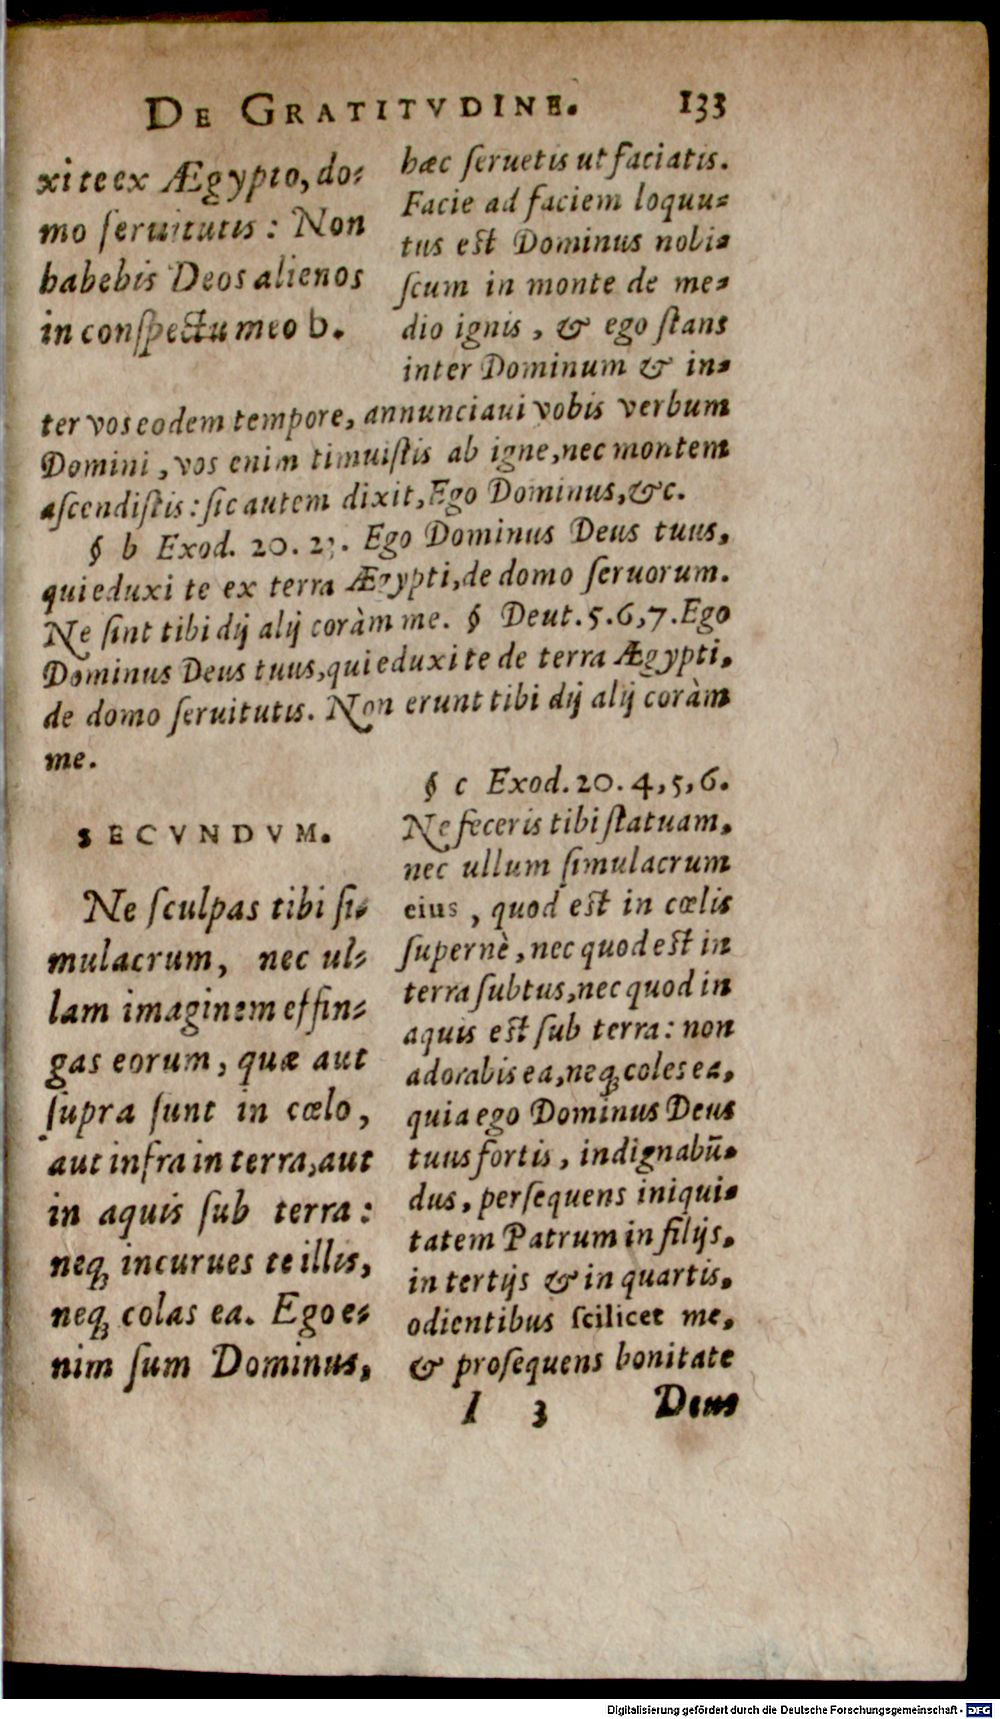 DE GRATITVDINE. 133
xi te ex Ægypto, do-
mo ſeruitutis: Non
habebis Deos alienos
in conſpectu meo b.
hæc ſeruetis ut faciatis.
Facie ad faciem loquu-
tus est Dominus nobi-
ſcum in monte de me-
dio ignis, & ego ſtans
inter Dominum & in-
ter vos eodem tempore, annunciaui vobis verbum
Domini, vos enim timuiſtis ab igne, nec montem
aſcendiſtis: ſic autem dixit, Ego Dominus, &c.
§ b Exod. 20. 2,3. Ego Dominus Deus tuus,
qui eduxi te ex terra Ægypti, de domo ſeruorum.
Ne ſint tibi dij alij coràm me. § Deut. 5. 6, 7. Ego
Dominus Deus tuus, qui eduxi te de terra Ægypti,
de domo ſeruitutis. Non erunt tibi dij alij coràm
me.
SECVNDVM.
Ne ſculpas tibi ſi-
mulacrum, nec ul-
lam imaginem effin-
gas eorum, quæ aut
ſupra ſunt in cœlo,
aut infra in terra, aut
in aquis ſub terra:
neq; incurues te illis,
neq; colas ea. Ego e-
nim ſum Dominus,
§ c Exod. 20. 4, 5, 6.
Ne feceris tibi ſtatuam,
nec ullum ſimulacrum
eius, quod est in cœlis
ſupernè, nec quod est in
terra ſubtus, nec quod in
aquis est ſub terra: non
adorabis ea, neq; coles ea,
quia ego Dominus Deus
tuus fortis, indignabū-
dus, perſequens iniqui-
tatem Patrum in filijs,
in tertijs & in quartis,
odientibus ſcilicet me,
& proſequens bonitate
I 3 Deus
Digitalisierung gefördert durch die Deutsche Forschungsgemeinschaft - DFG